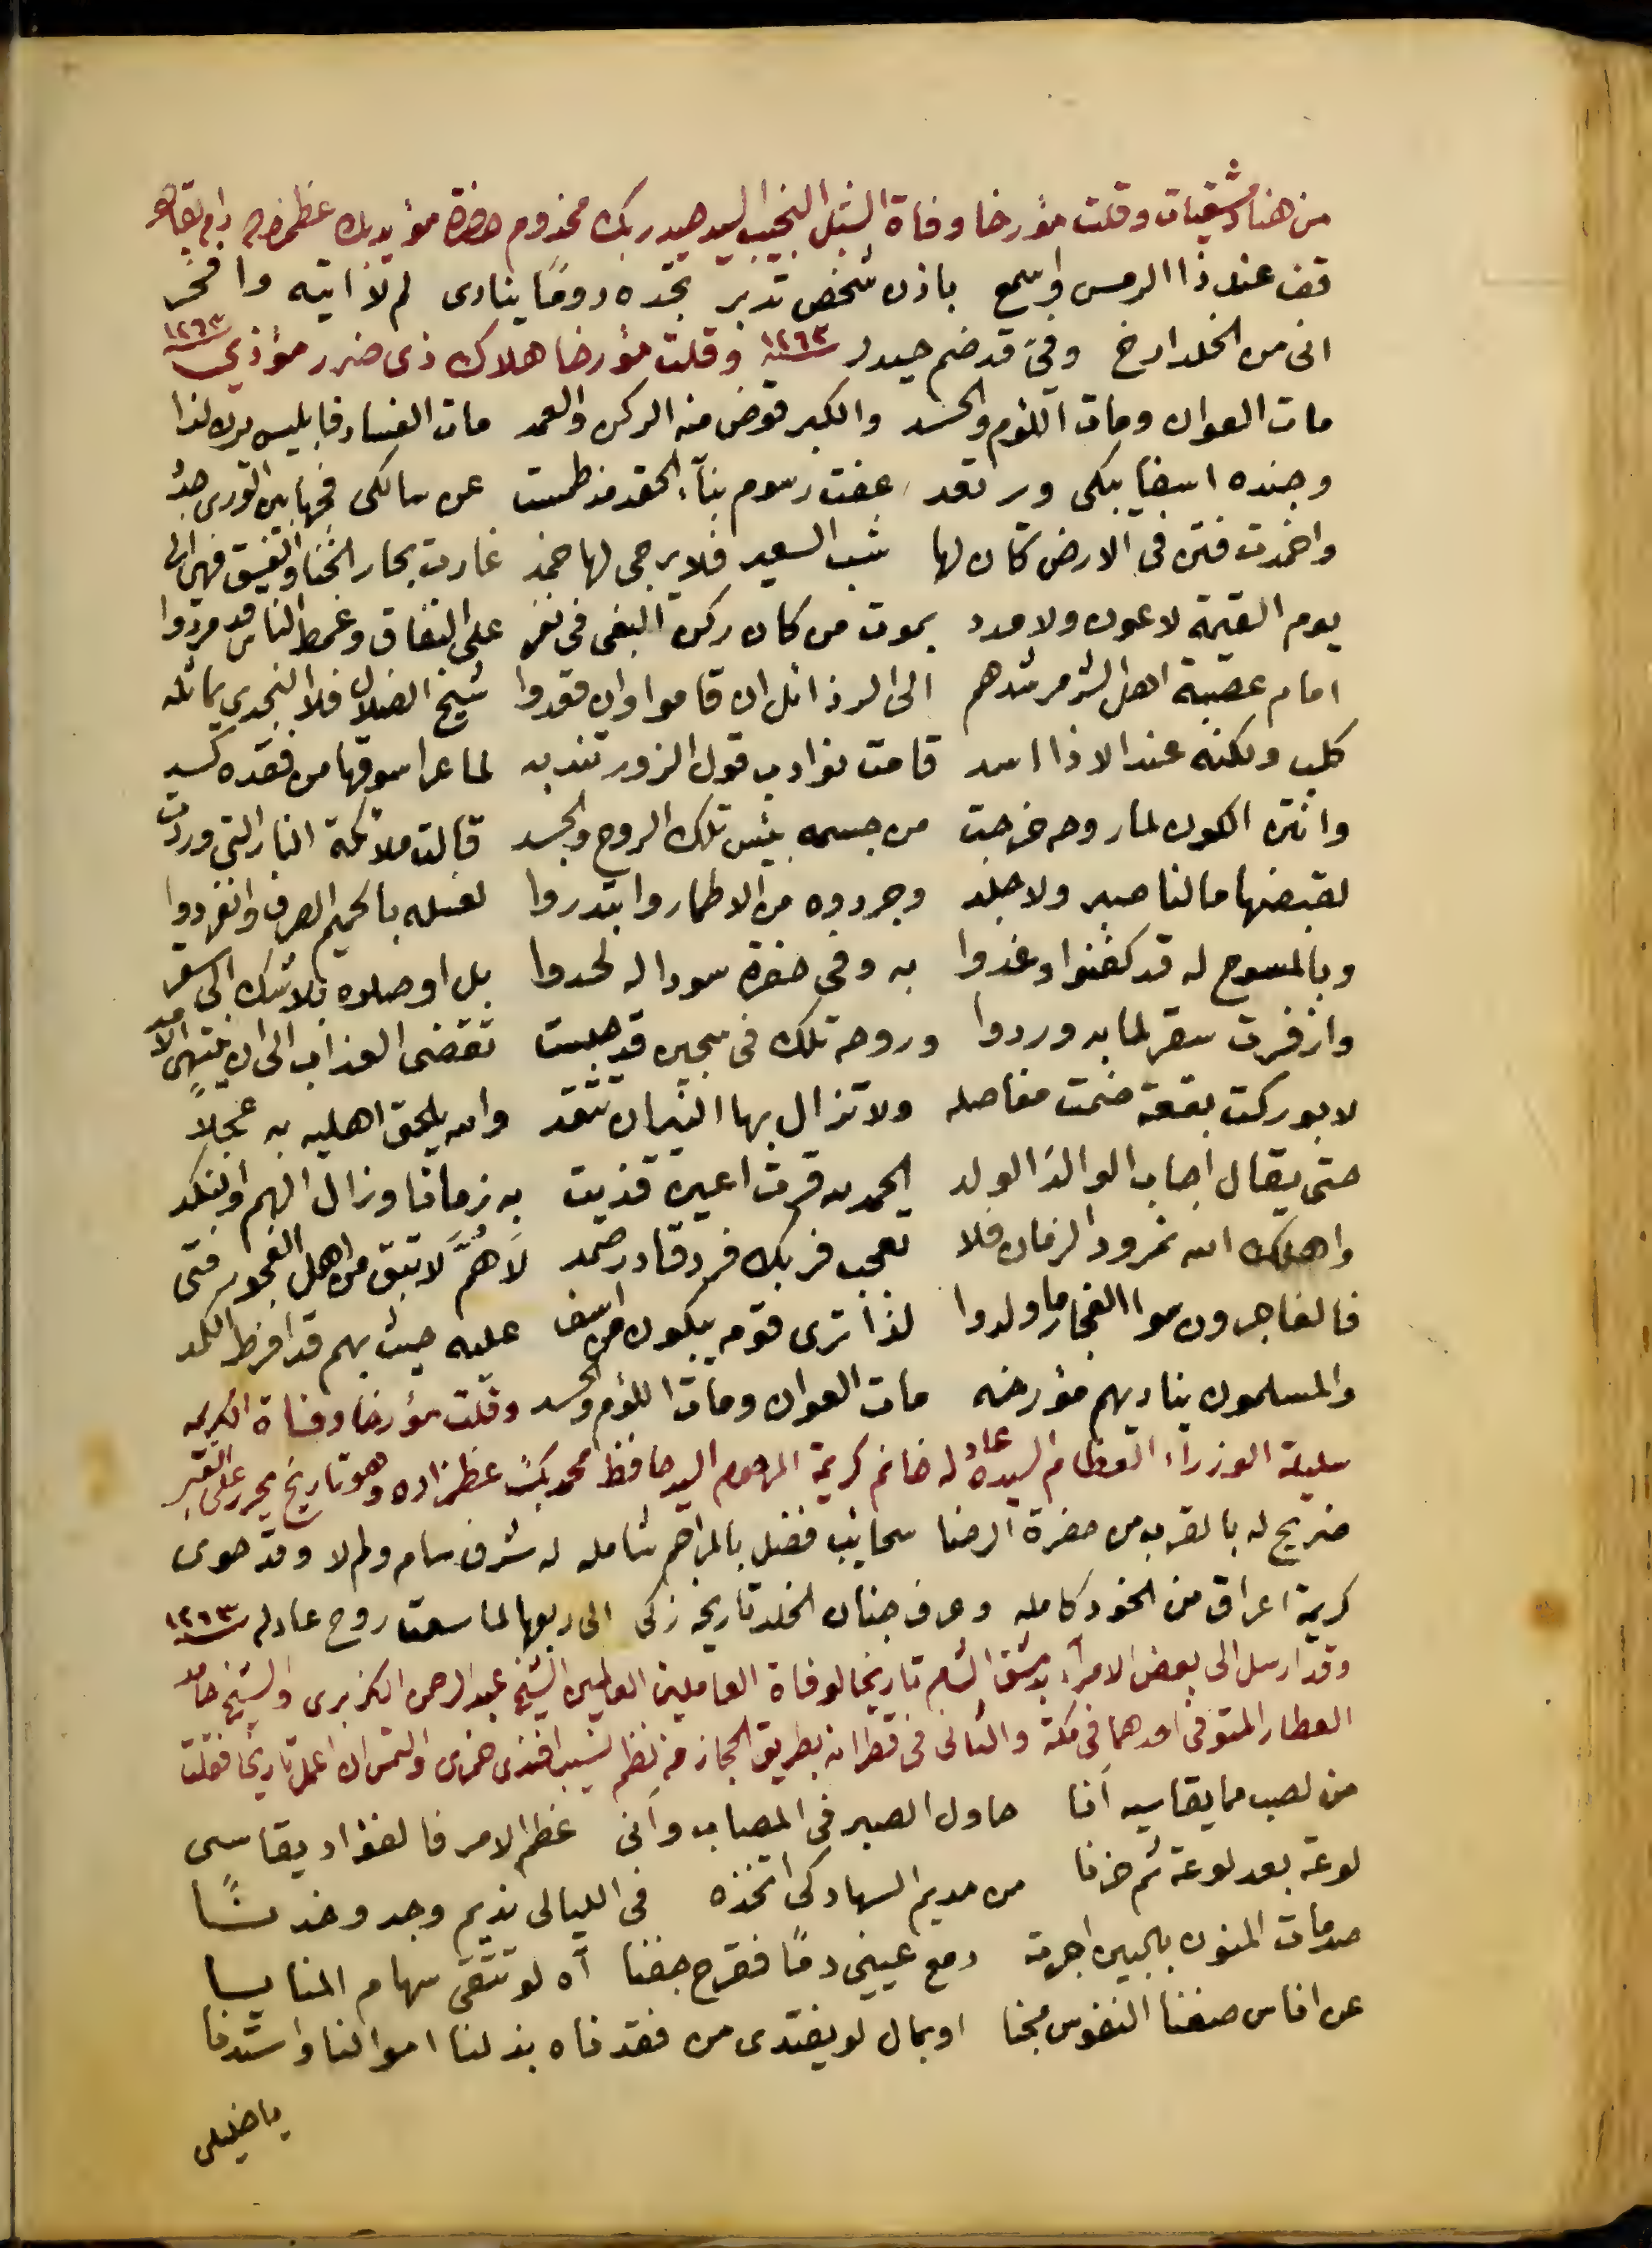 من هنا دمشقيات وقلت مؤرخا وفاة الشبل النجيب السيد حيدر بك مخدوم حضرة مؤيد بك عظمزاده دام بقاه
قف عند ذا الرمس واسمع باذن شخص تدبر تجده دومًا ينادى لم لا اتيه وافخر
انى من الخلد ارخ وفيّ قد ضم حيدر سنة ١٢٦٣ وقلت مؤرخا هلاك ذى ضرر مؤذي سنة ١٢٦٣
مات العوان ومات اللؤم والحسد والكبر قوض منه الركن والعمد مات الفساد فابليس يرى لذا
وجنده اسفا يبكى ويرتعد عفت رسوم بناء الحقد مذ طمست عن سالكى فجها بين الورى جدد
واخمدت فتن فى الارض كان لها شب السعير فلا يرجى لها خمد غارت بحار الخنا والفسق فهى الى
يوم القيمة لا عون ولا مدد بموت من كان ركن البغى فى نفر على النفاق وغمط الناس قد مردوا
امام عصبة اهل الشر مرشدهم الى الرذائل ان قاموا وان قعدوا شيخ الضلال فلا النجدي يماثله
كلب ولكنه عند الاذا اسد قامت نوادب قول الزور تندبه لما عرا سوقها من فقده كسد
وانتن الكون لما روحه خرجت من جسمه بئس تلك الروح والجسد قالت ملائكة النار التى وردت
لقبضها ما لنا صبر ولا جلد وجردوه من الاطمار وابتدروا لغسله بالحميم الصرف وانفردوا
وبالمسوح له قد كفنوا وغدوا به وفى حفرة سودا له لحدوا بل اوصلوه بلا شك الى سقر
وازفرت سقر لما به وردوا وروحه تلك فى سجين قد حبست تقضى العذاب الى ان ينتهى الامد
لا بوركت بقعة ضمت مفاصله ولا تزال بها النيران تتقد والله يلحق اهليه به عجلاً
حتى يقال اجاب الوالدَ الولد الحمد لله قرت اعين قذيت به زمانا وزال الهم والنكد
واهلك الله نمرود الزمان فلا تعجب فربك فرد قادر صمد لاهُمَّ لا تبق من اهل الفجور فتى
فالفاجرون سوا الفجار ما ولدوا لذا ترى قومه يبكون من اسف عليه حيث بهم قد افرط الكمد
والمسلمون يناديهم مؤرخه مات العوان ومات اللؤم والحسد وقلت مؤرخا وفاة الكريمه
سليلة الوزراء العظام السيدة عادله خانم كريمة المرحوم السيد حافظ محمد بك عظمزاده وهو تاريخ محرر على القبر
ضريح له بالقرب من حضرة الرضا سحايب فضل بالمراحم شامله له شرف سام ولم لا وقد حوى
كريمة اعراق من الخود كامله وعرف جنان الخلد تاريخه زكى الى ربها لما سعت روح عادله سنة ١٢٦٣
وقد ارسل الى بعض الامراء بدمشق الشام تاريخا لوفاة العاملين العالمين الشيخ عبد الرحمن الكزبرى والشيخ حامد
العطار المتوفى احدهما فى مكة والثانى فى قطرانه بطريق الحجاز من نظم نسيب افندى حمزى والتمس ان اعمل تاريخا فقلت
من لصب مما يقاسيه انا حاول الصبر فى المصاب وأنى عظم الامر فالفؤاد يقاسى
لوعة بعد لوعة ثم حزنا من مديم السهاد كى اتخذه فى الليالى نديم وجد وخدنًا
صدمات المنون بالبين اجرت دمع عينى دمًا فقرح جفنا آه لو تتقى سهام المنايا
عن اناس صغنا النفوس مجنا او بمال لو يفتدى من فقدناه بذلنا اموالنا واستدنا
يا خليلى